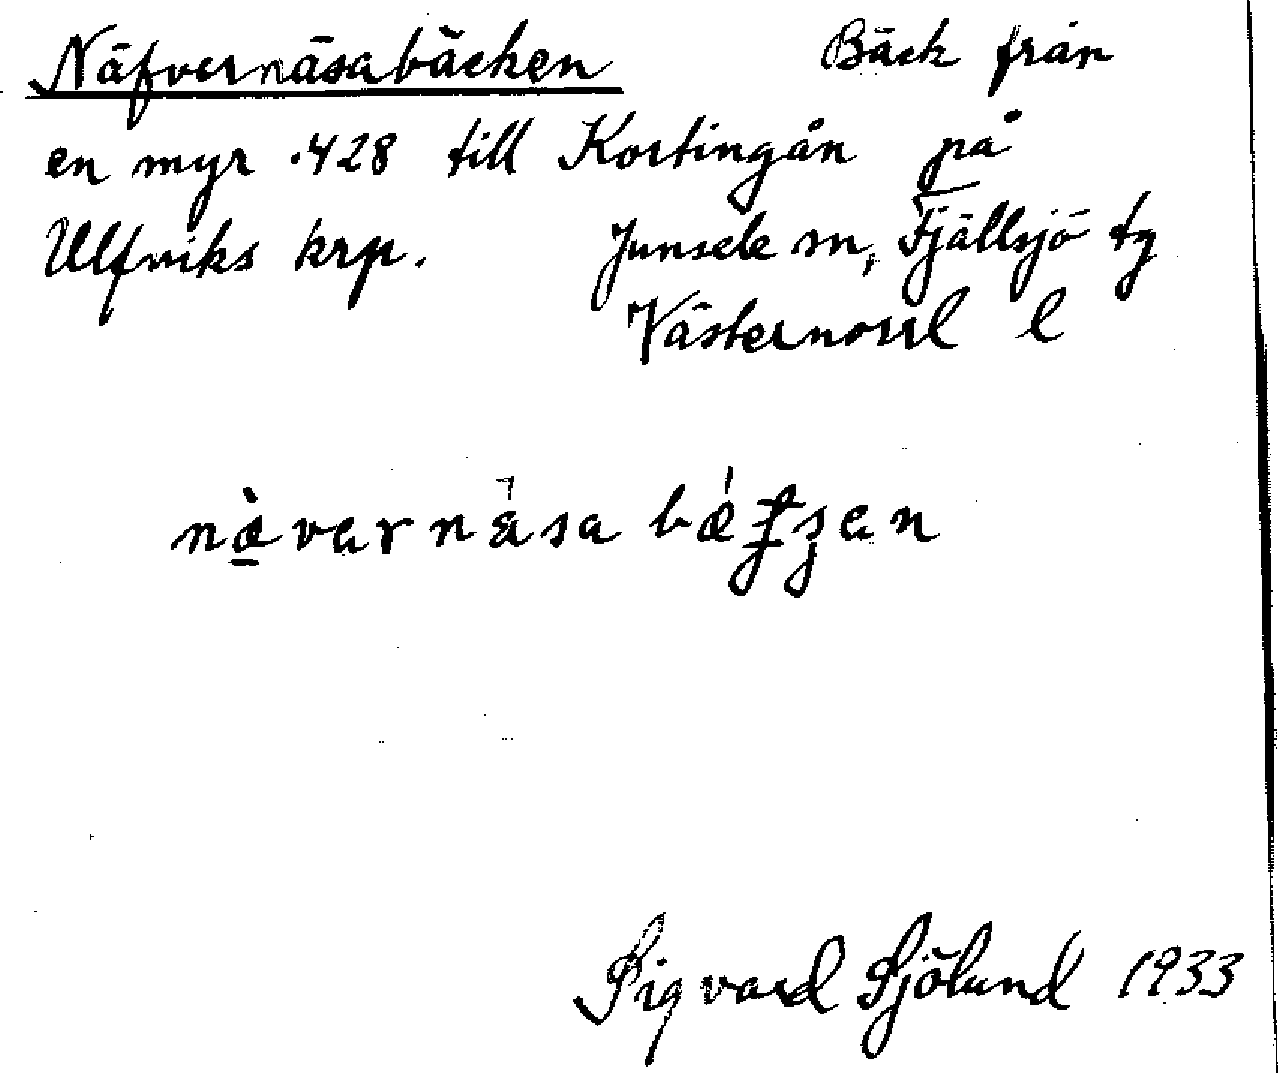 Näfvernäsabäcken Bäck från
en myr .428 till Kortingån på
Ulfviks krp. Junsele sn, Fjällsjö tg
Västernorrl l
Sigvard Sjölund 1933